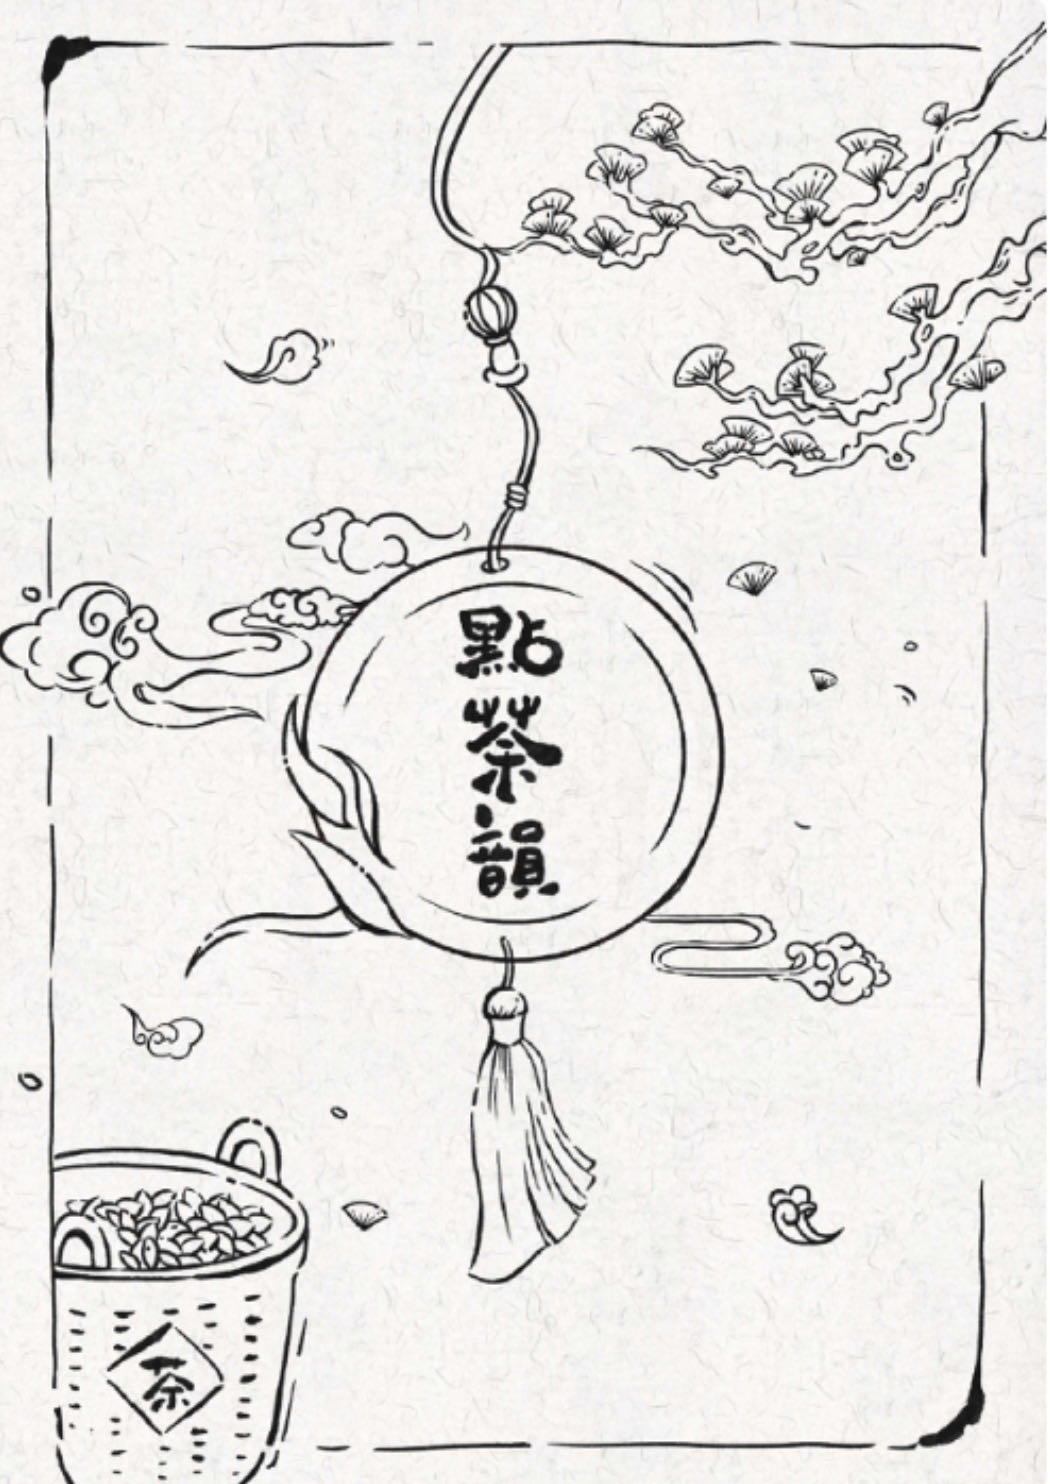 點茶韻
茶